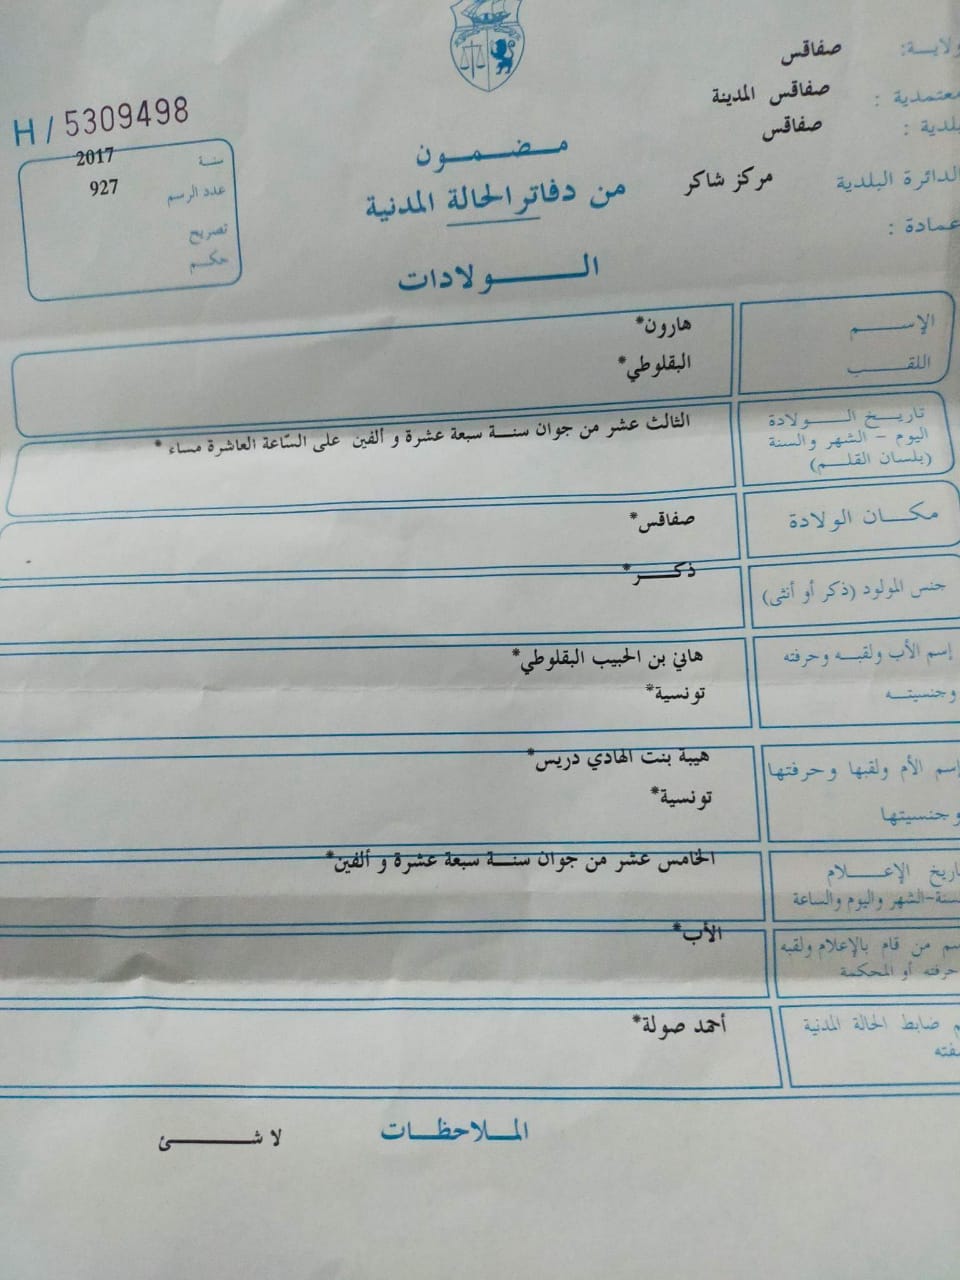 ولاية: صفاقس
معتمدية : صفاقس المدينة
بلدية : صفاقس
الدائرة البلدية مركز شاكر
عمادة :
H / 5309498
سنة 2017
عدد الرسم 927
تصريح
حكم
مضمون
من دفاتر الحالة المدنية
الولادات
الإسم هارون*
اللقب البقلوطي*
تاريخ الولادة
اليوم - الشهر والسنة
(بلسان القلم)
الثالث عشر من جوان سنة سبعة عشرة و ألفين على السّاعة العاشرة مساء *
مكان الولادة صفاقس*
جنس المولود (ذكر أو أنثى) ذكر*
إسم الأب ولقبه وحرفته هاني بن الحبيب البقلوطي*
وجنسيته تونسية*
إسم الأم ولقبها وحرفتها هيبة بنت الهادي دريس*
وجنسيتها تونسية*
تاريخ الإعلام الخامس عشر من جوان سنة سبعة عشرة و ألفين*
السنة-الشهر واليوم والساعة
إسم من قام بالإعلام ولقبه الأب*
حرفته أو المحكمة
ضابط الحالة المدنية أحمد صولة*
الملاحظات لا شئ